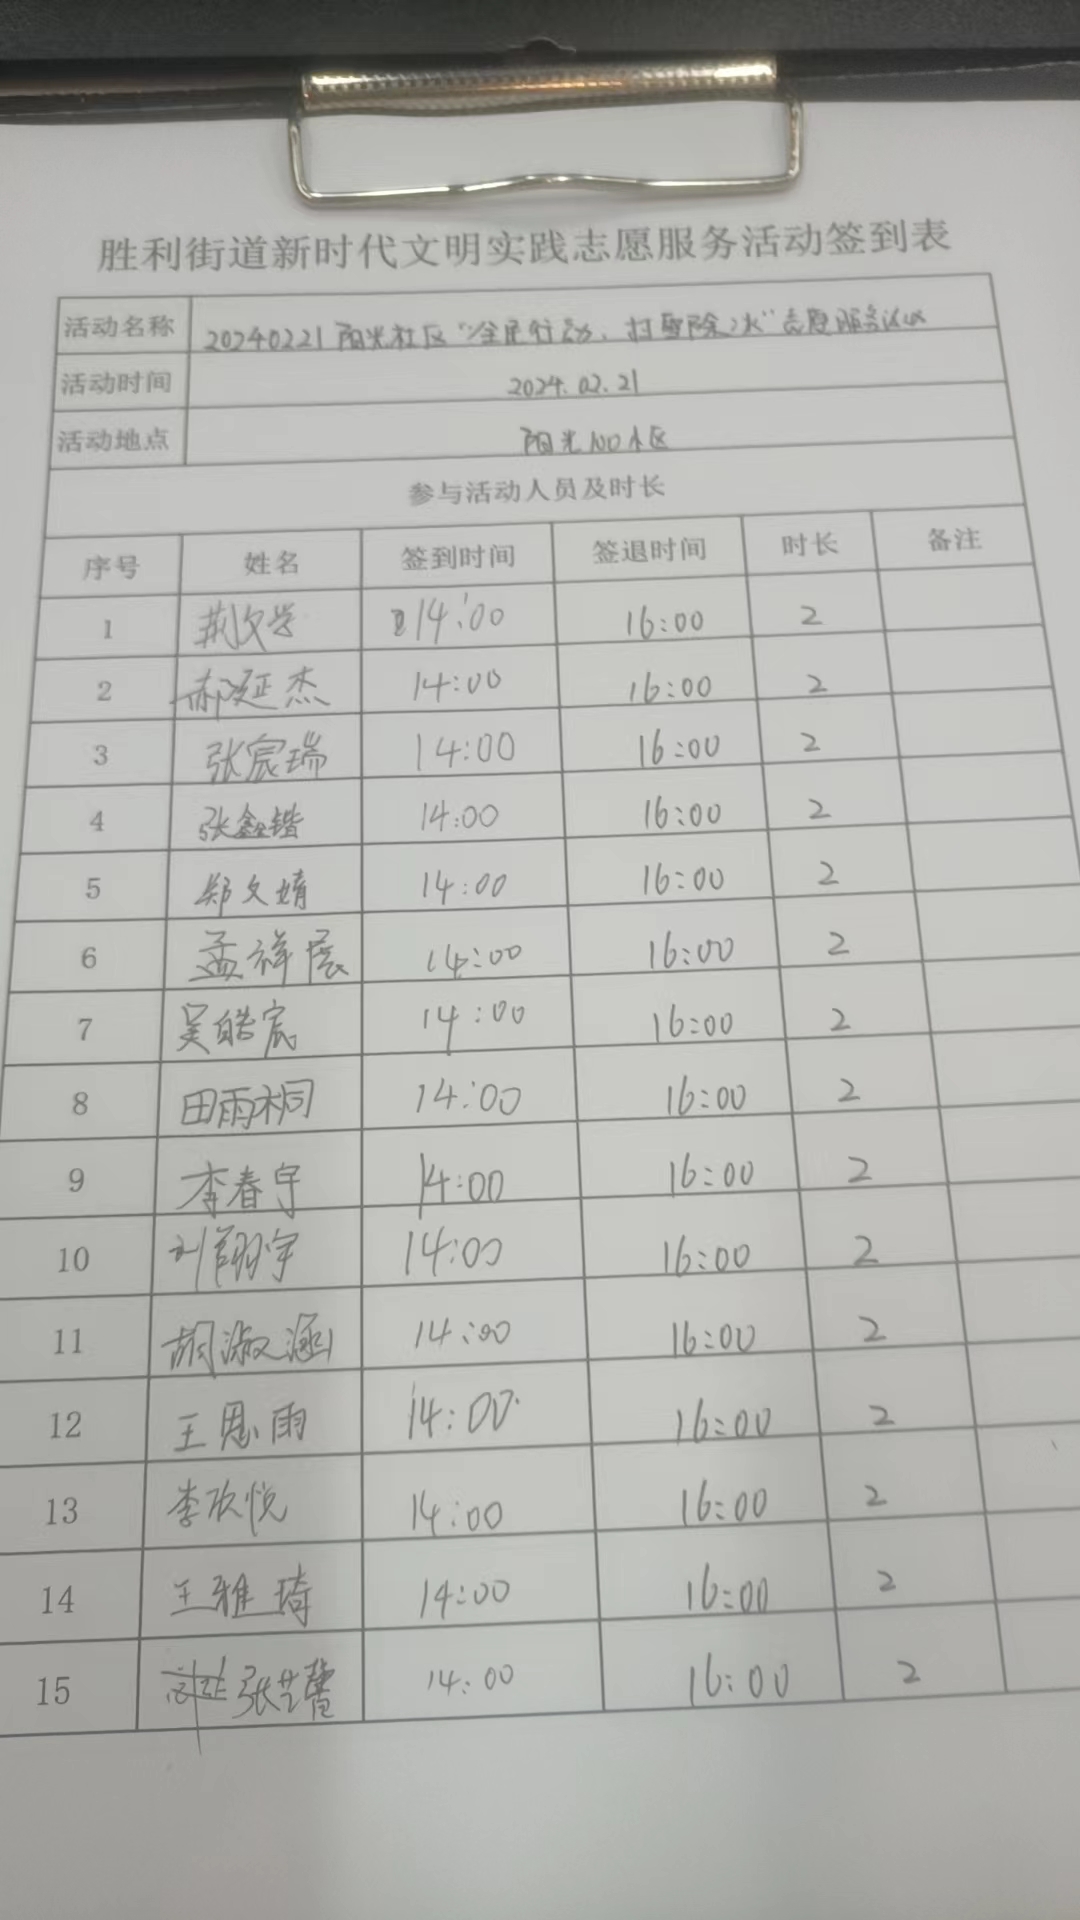 胜利街道新时代文明实践志愿服务活动签到表
活动名称 20240221阳光社区“全民行动、扫雪除冰”志愿服务活动
活动时间 2024.02.21
活动地点 阳光100小区
参与活动人员及时长
序号 姓名 签到时间 签退时间 时长 备注
1 荆文学 14:00 16:00 2
2 郝延杰 14:00 16:00 2
3 张宸瑞 14:00 16:00 2
4 张鑫锴 14:00 16:00 2
5 郑文婧 14:00 16:00 2
6 孟祥宸 14:00 16:00 2
7 吴皓宸 14:00 16:00 2
8 田雨桐 14:00 16:00 2
9 李春宇 14:00 16:00 2
10 刘翔宇 14:00 16:00 2
11 胡淑涵 14:00 16:00 2
12 王思雨 14:00 16:00 2
13 李欣悦 14:00 16:00 2
14 王雅琦 14:00 16:00 2
15 张艺馨 14:00 16:00 2